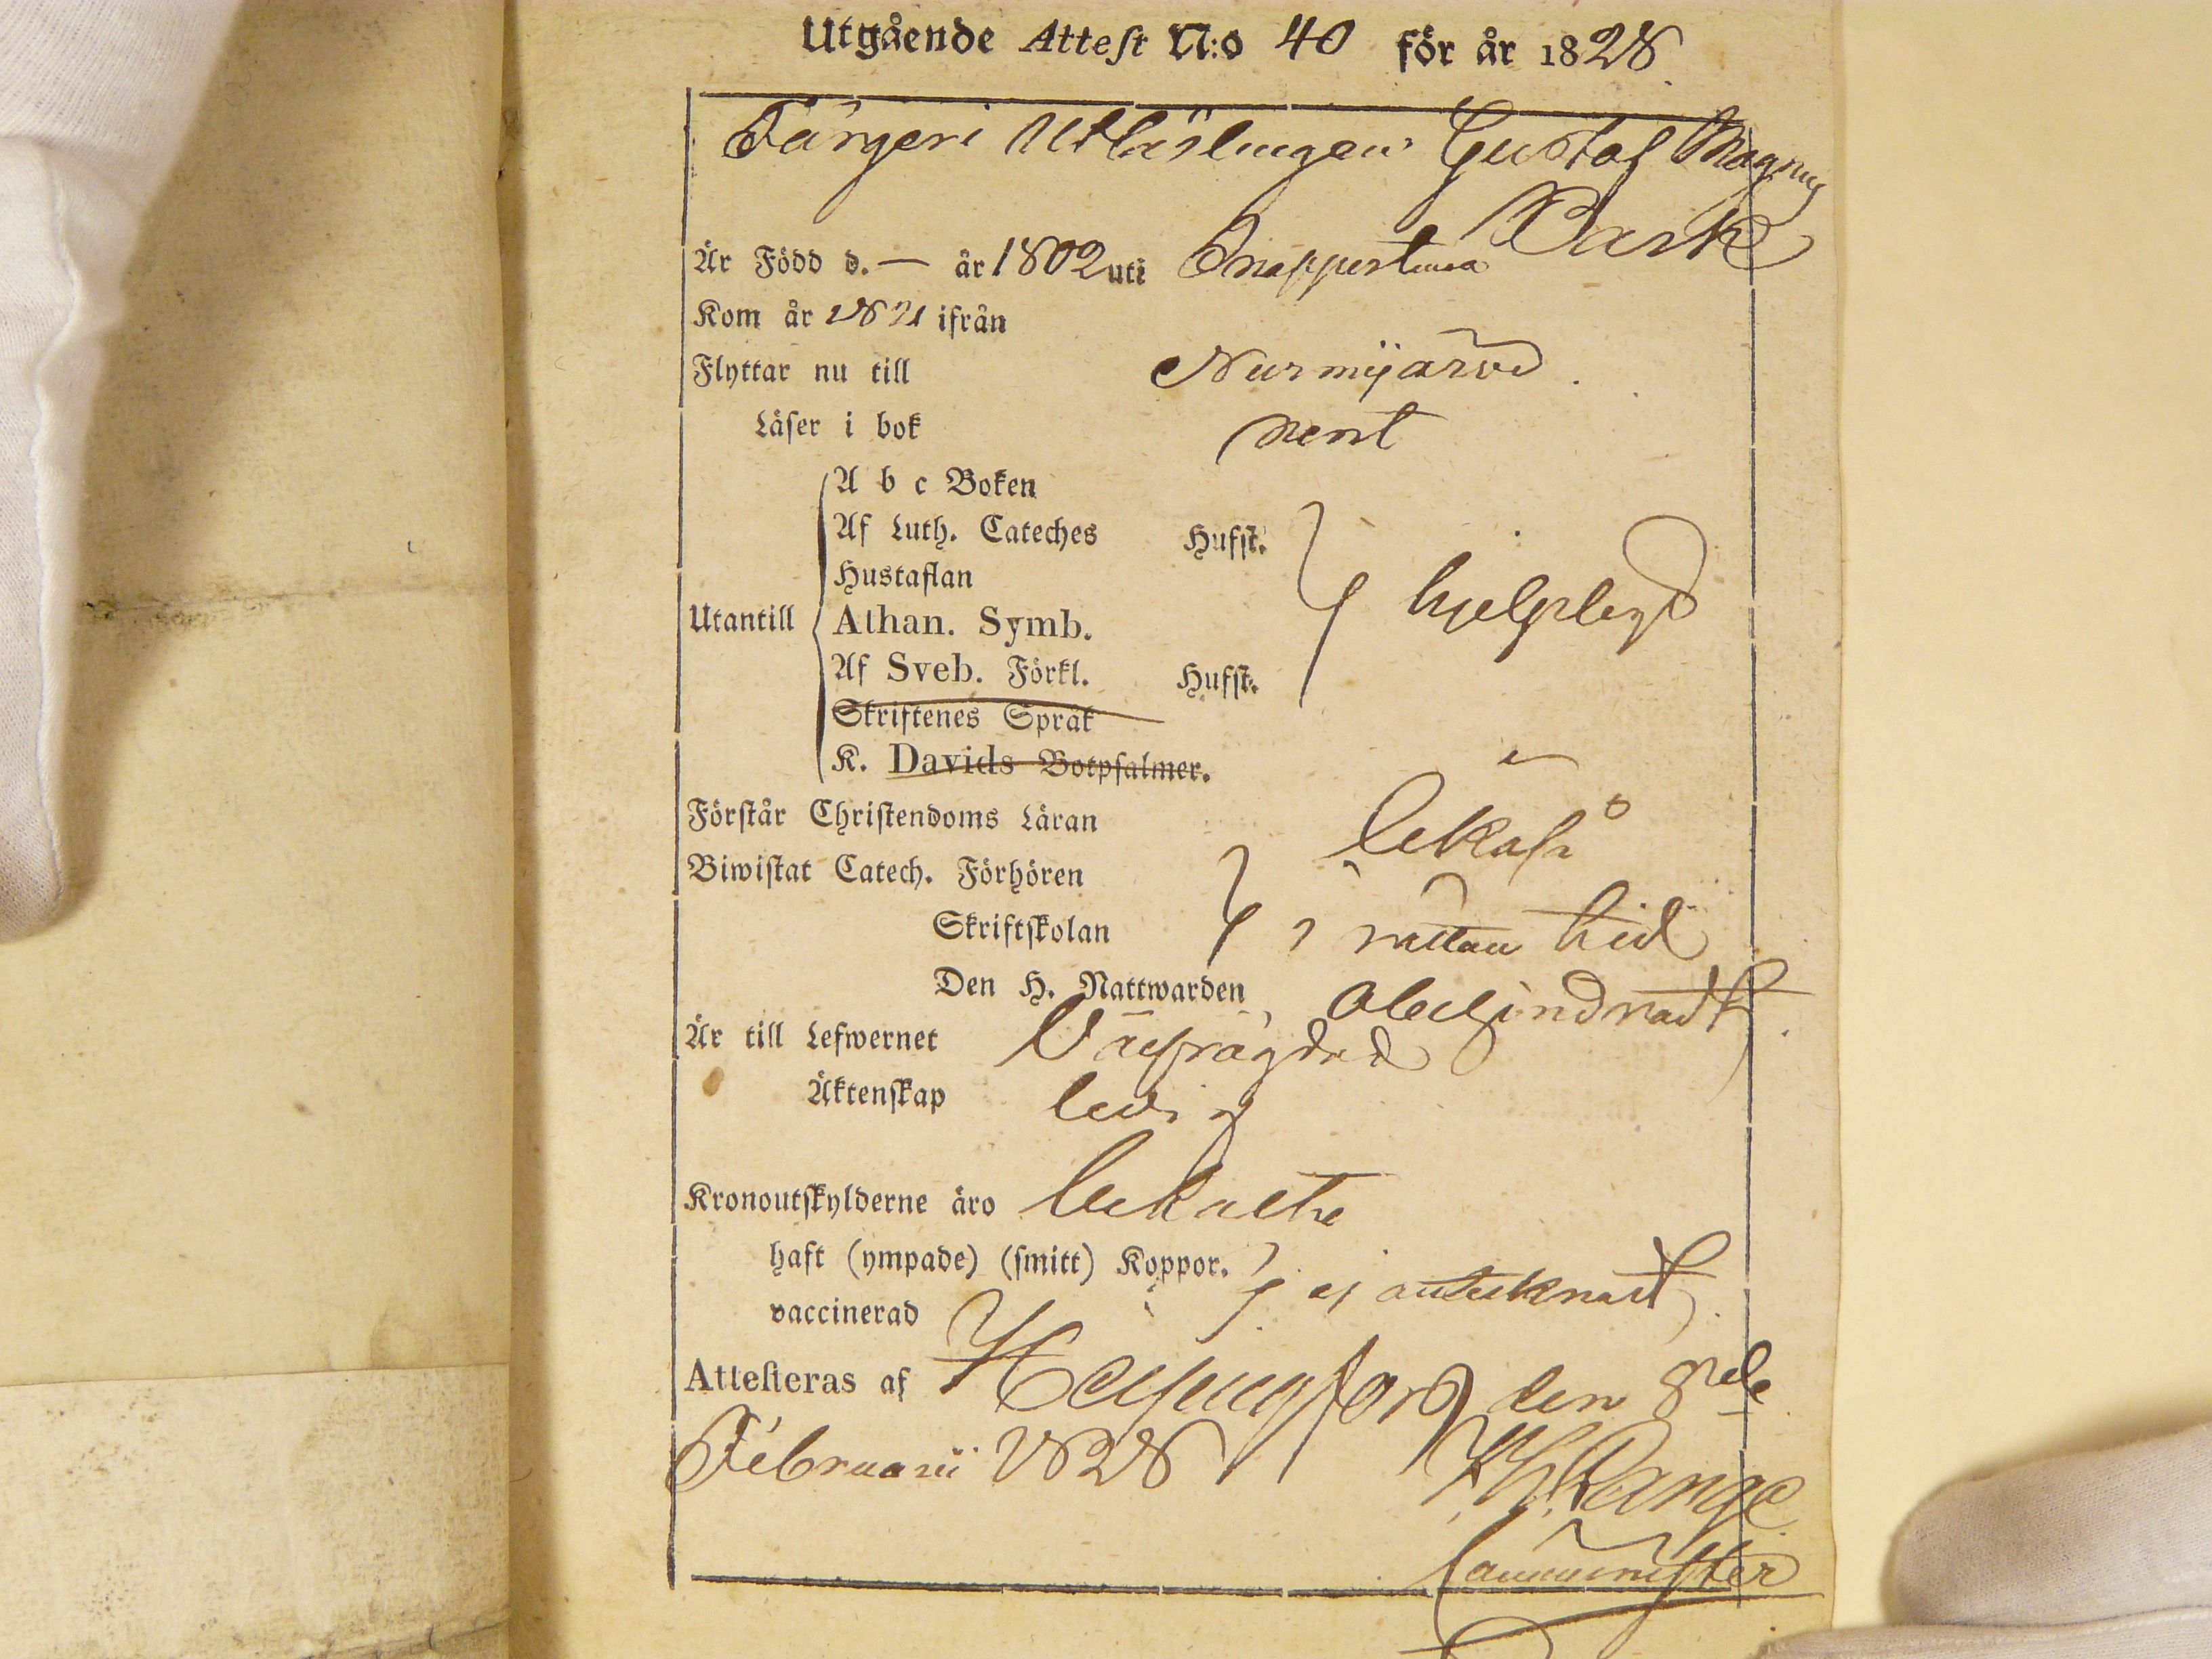 Utgående Attest N:o 40 för år 1828.
Färgeri Utlärlingen Gustaf Magnus
Park
Är Född d. — år 1802 uti Knappertuna
Kom år 1821 ifrån
Flyttar nu till Nurmijärvi.
Läser i bok rent
A b c Boken
Af Luth. Cateches Hufst.
Hustaflan
Utantill Athan. Symb. hjelpligt
Af Sveb. Förkl. Hufst.
Skriftenes Språk
K. Davids Botpsalmer.
Förstår Christendoms Läran likaså
Biwistat Catech. Förhören
Skriftskolan i rättan tid
Den H. Nattwarden obehindradt.
Är till Lefwernet Välfrägdad
Äktenskap ledig
Kronoutskylderne äro betalte
haft (ympade) (smitt) Koppor. ej antecknadt
vaccinerad
Attesteras af Helsingfors den
Februarii 1828